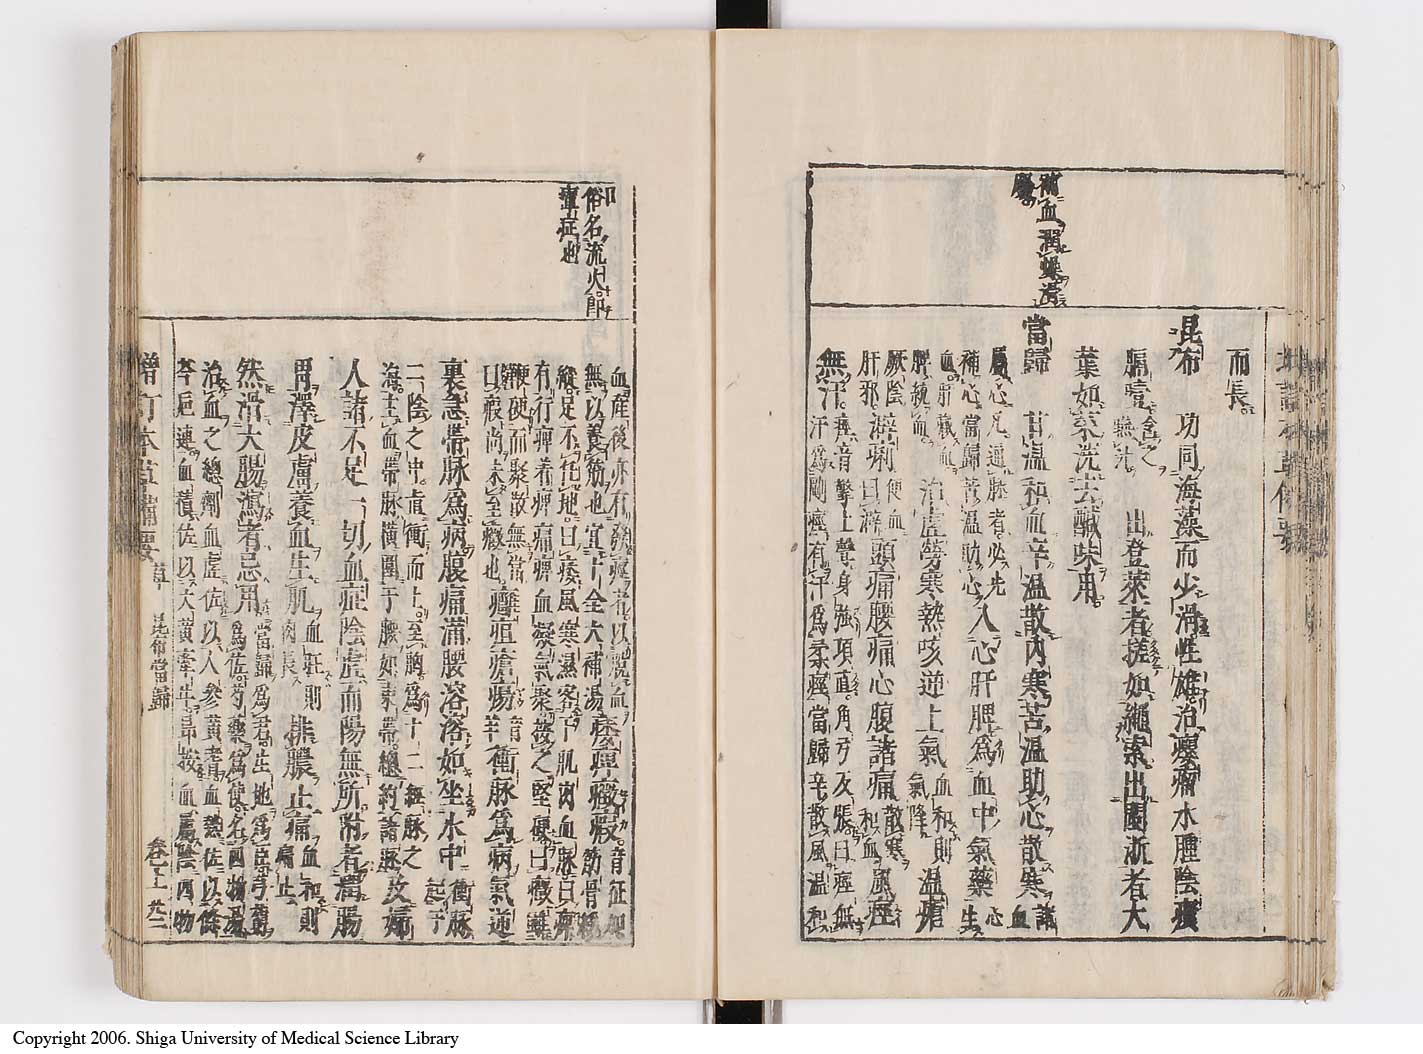 補血潤燥滑
腸
而長
昆布　功同海藻而少滑性雄治癭瘤水腫陰㿉
膈噎含之嚥汁　出登萊者搓如繩索出閩浙者大
葉如菜洗去鹹味用
當歸　甘溫和血辛溫散內寒苦溫助心散寒諸血
屬心凡通脉者必先
補心當歸苦溫助心
入心肝脾為血中氣藥心生
血肝藏血
脾統血
治虛勞寒熱咳逆上氣血和則氣降
溫瘧
厥陰
肝邪
澼痢便血曰澼
頭痛腰痛心腹諸痛散寒和血
風痙
無汗痙音擎上聲身強項直角弓反張曰痙無
汗為剛痙有汗為柔痙當歸辛散風溫和
俗名流火卽
症也
血產後亦有發痙者以脫血
無以養筋也宜十全大補湯
痿痺癥瘕筋骨
緩足不任地曰痿風寒濕客于肌肉血脉曰痺
有行痺着痺痛痺血凝氣聚按之堅硬曰癥雖
堅硬而聚散無常
曰瘕尚未至癥也
癰疽瘡瘍
衝脉為病氣逆
裏急帶脉為病腹痛滿腰溶溶如坐水中衝脉起于
二陰之中直衝而上至胸為十二經脉之
海主血帶脉橫圍于腰如束帶總約諸脉
及婦
人諸不足一切血症陰虛而陽無所附者潤腸
胃澤皮膚養血生肌血旺則肉長
排膿止痛血和則痛止
然滑大腸瀉者忌用當歸為君生地為臣芍
藥為使名四物湯
治血之總劑血虛佐以人參黃耆血熱佐以條
芩連血積佐以大黃牽牛
血屬陰四物
增訂本草備要　草　昆布當歸　卷上